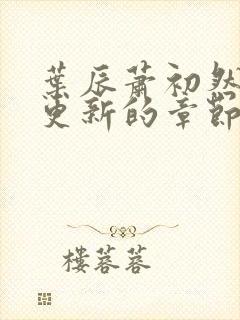 葉辰蕭初然
更新的章節
樓蓉蓉